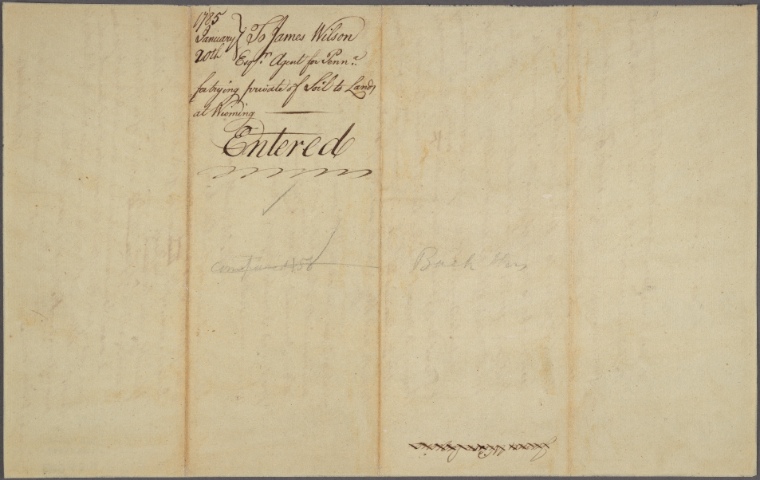 1785
January } To James Wilson
20th Esqr. Agent for Penna.
for trying private of Soil to Lands
at Wioming
Entered
Back